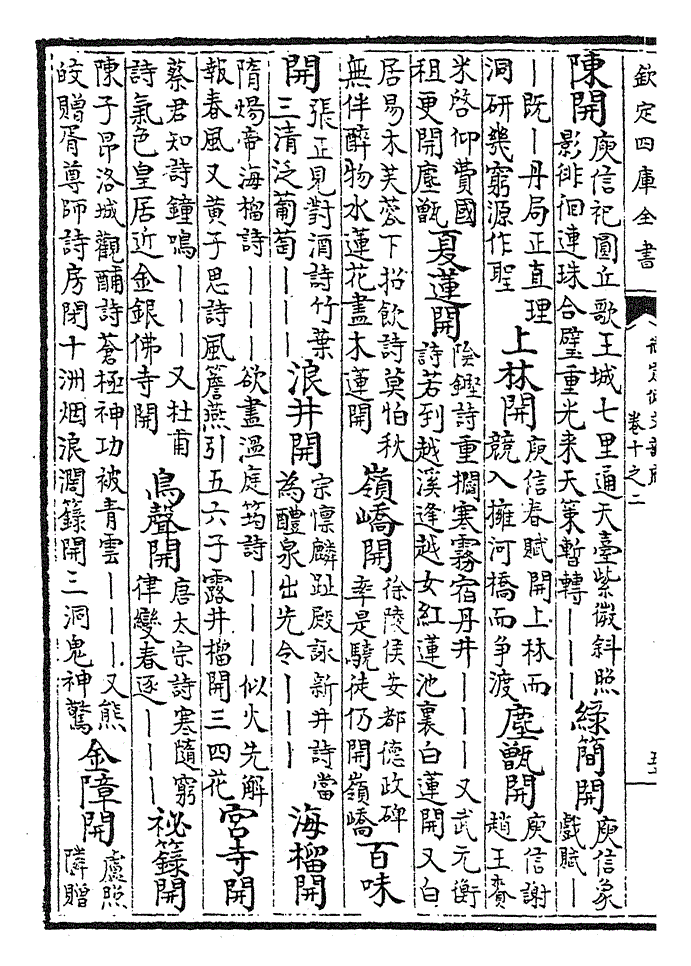 欽定四庫全書
御定佩文韻府
卷十之二
五
陳開
庾信祀圓丘歌王城七里通天臺紫微斜照
影徘徊連珠合璧重光来天策暫轉丨丨
緑簡開
庾信象
戲賦丨
丨既丨丹局正直理
洞研幾窮源作聖
上林開
庾信春賦開上林而
競入擁河橋而争渡
塵甑開
庾信謝
趙王賚
米啓仰費國
租更開塵甑
夏蓮開
陰鏗詩重櫩寒霧宿丹井丨丨丨又武元衡
詩若到越溪逢越女紅蓮池裏白蓮開又白
居易木芙蓉下招飲詩莫怕秋
無伴醉物水蓮花盡木蓮開
嶺嶠開
徐陵侯安都德政碑
率是驍徒仍開嶺嶠
百味
開
張正見對酒詩竹葉
三清泛葡萄丨丨丨
浪井開
宗懍麟趾殿詠新井詩當
為醴泉出先令丨丨丨
海榴開
隋煬帝海榴詩丨丨丨欲盡溫庭筠詩丨丨丨丨似火先解
報春風又黄子思詩風簷燕引五六子露井榴開三四花
宮寺開
蔡君知詩鐘鳴丨丨丨又杜甫
詩氣色皇居近金銀佛寺開
鳥聲開
唐太宗詩寒隨窮
律變春逐丨丨丨
祕籙開
陳子昂洛城觀酺詩蒼極神功被青雲丨丨丨又熊
皎贈胥尊師詩房閉十洲烟浪濶籙開三洞鬼神驚
金障開
盧照
隣贈